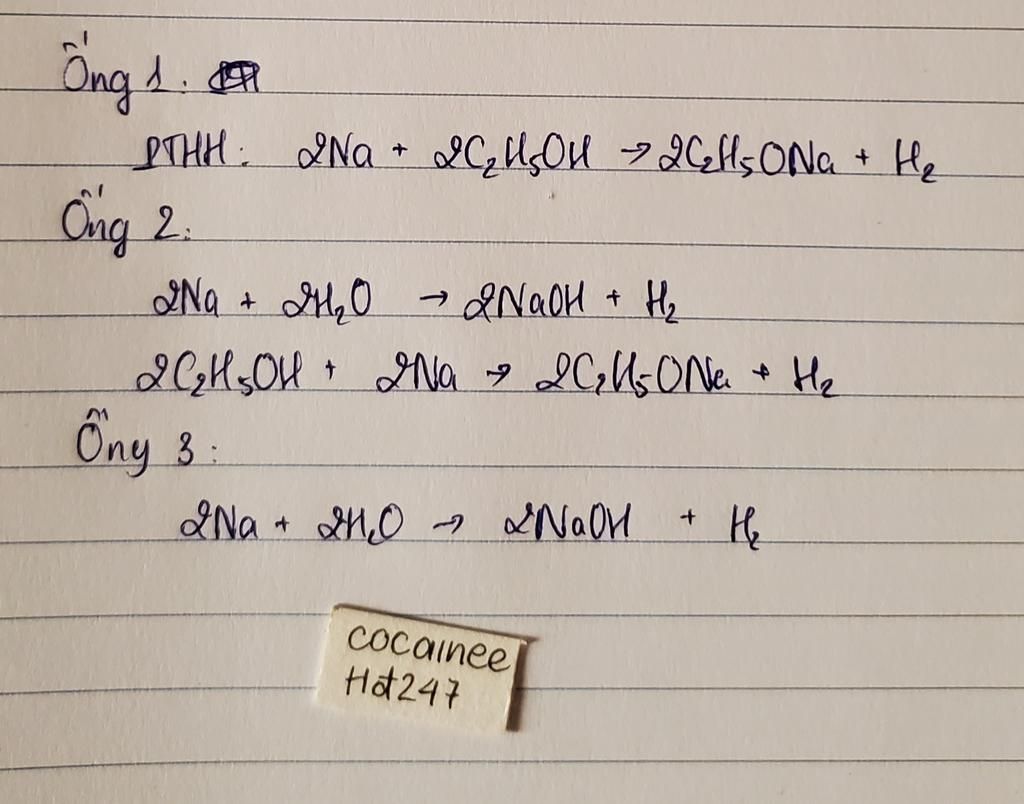 Ống 1:
PTHH: 2Na + 2C₂H₅OH → 2C₂H₅ONa + H₂
Ống 2:
2Na + 2H₂O → 2NaOH + H₂
2C₂H₅OH + 2Na → 2C₂H₅ONa + H₂
Ống 3:
2Na + 2H₂O → 2NaOH + H₂
cocainee
Hot247